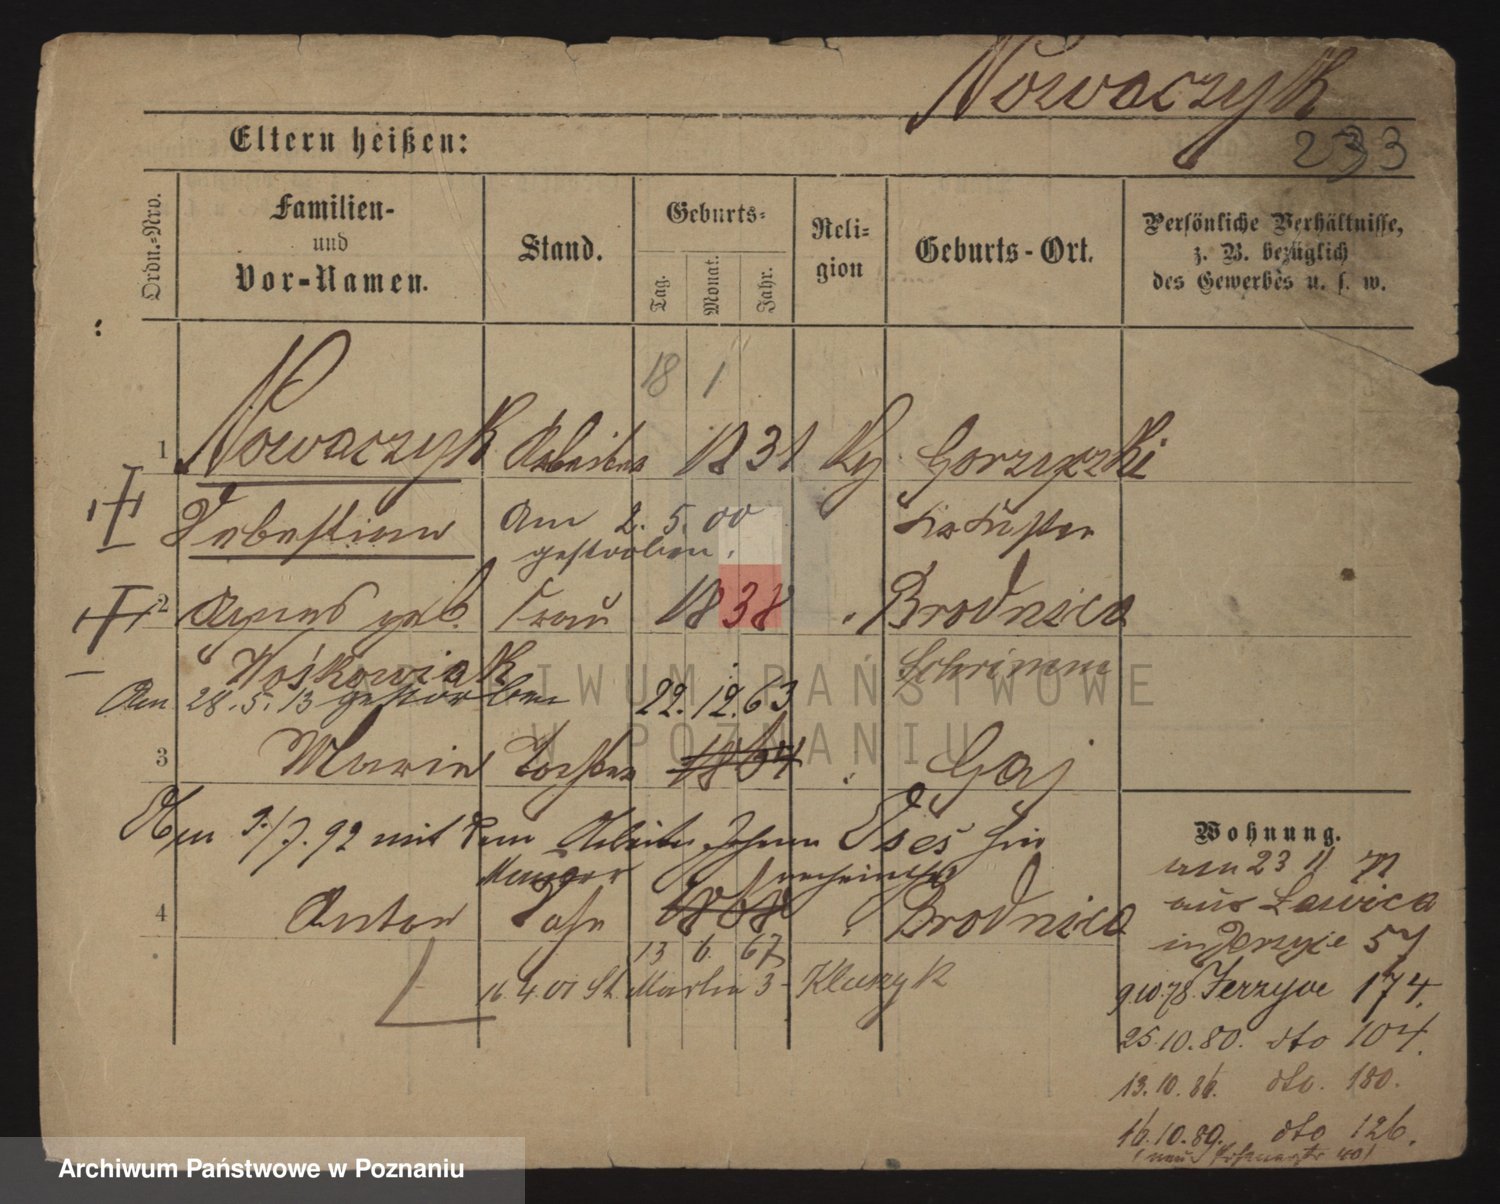 Nowaczyk
233
Eltern heißen:
Ordn.-Nro.
Familien-
und
Vor-Namen.
Stand.
Geburts-
Tag.
Monat.
Jahr.
Reli-
gion
Geburts-Ort.
Persönliche Verhältnisse,
z. B. bezüglich
des Gewerbes u. s. w.
18 1
1 Nowaczyk Arbeiter 1831 Gorzyczki
Sebastian Am 2. 5. 00
gestorben.
2 Agnes geb. Frau 1838 Brodnica
Wośkowiak Schrimm
Am 28. 5. 13 gestorben 22. 12. 63
3 Marie Tochter 1864 Gaj
92 mit dem Arbeiter Johann
4 Anton Sohn 1868 Brodnica
13 6. 67
16.4.01 St. Martin 3
Wohnung.
23 11 77
aus Lawica
in 57
9.10.78. Jerzyce 174.
25.10.80. dto 104.
13.10.86. dto. 180.
16.10.89. dto 126.
ARCHIWUM PAŃSTWOWE
W POZNANIU
Archiwum Państwowe w Poznaniu